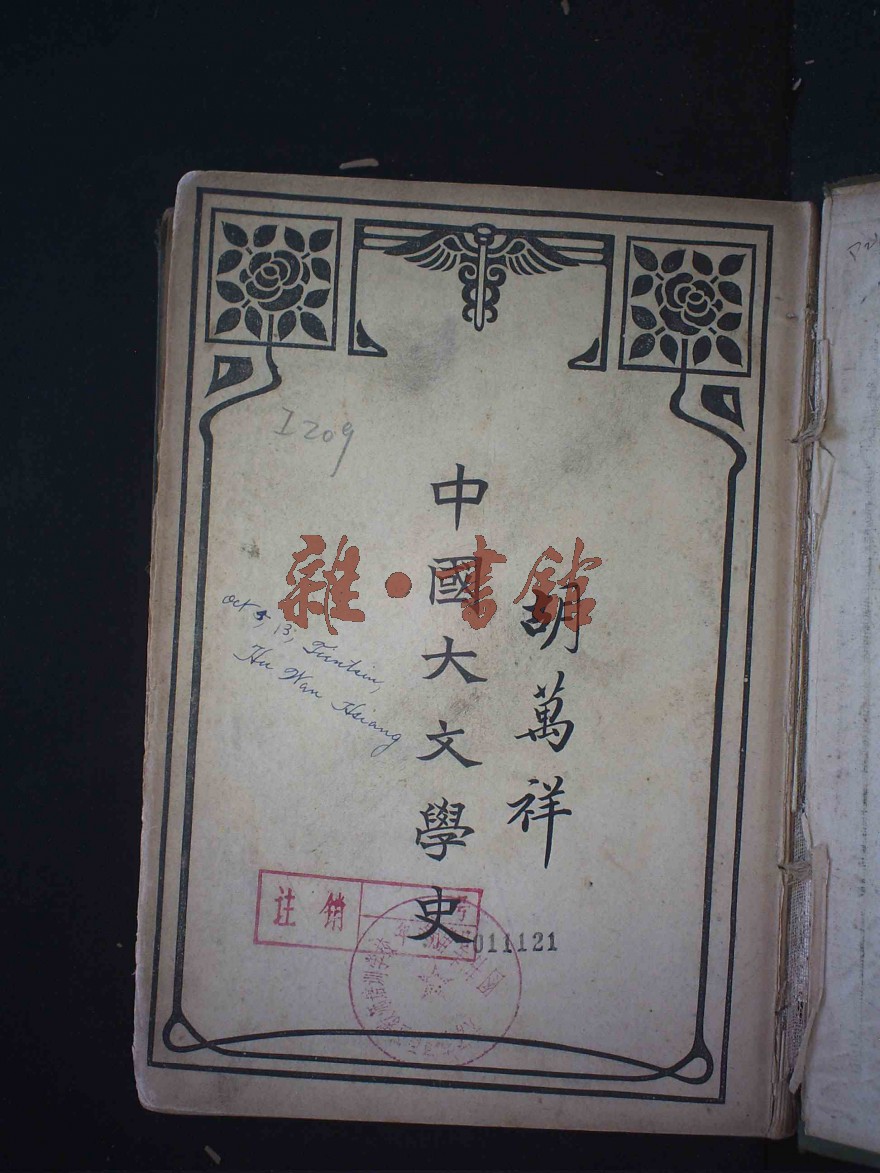 I209
胡萬祥
中國大文學史
雜·書館
Oct 5, 13, Tientsin,
Hu Wan Hsiang
注销
号
年
011121